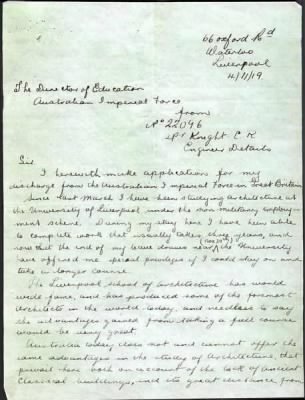 66 Oxford Rd
Waterloo
Liverpool
4/11/19.
The Director of Education
Australian Imperial Force
from
No 22046
Spr Knight C R
Engineer Details
Sir
I herewith make application for my
discharge from the Australian Imperial Force in Great Britain
Since last March I have been studying architecture at
the University of Liverpool under the non military employ
ment scheme. During my stay here I have been able
to complete work that usually takes three years, and
now that the end of my leave draws near (Nov 30th) the University
have offered me special privileges if I could stay on and
take a longer course.
The Liverpool school of architecture has world
wide fame, and has produced some of the foremost
architects in the world today, and needless to say
the advantages gained from taking a full course
would be very great.
Australia today does not and cannot offer the
same advantages in the study of Architecture, that
prevail here both on account of the lack of ancient
Classical buildings, and its great distance from